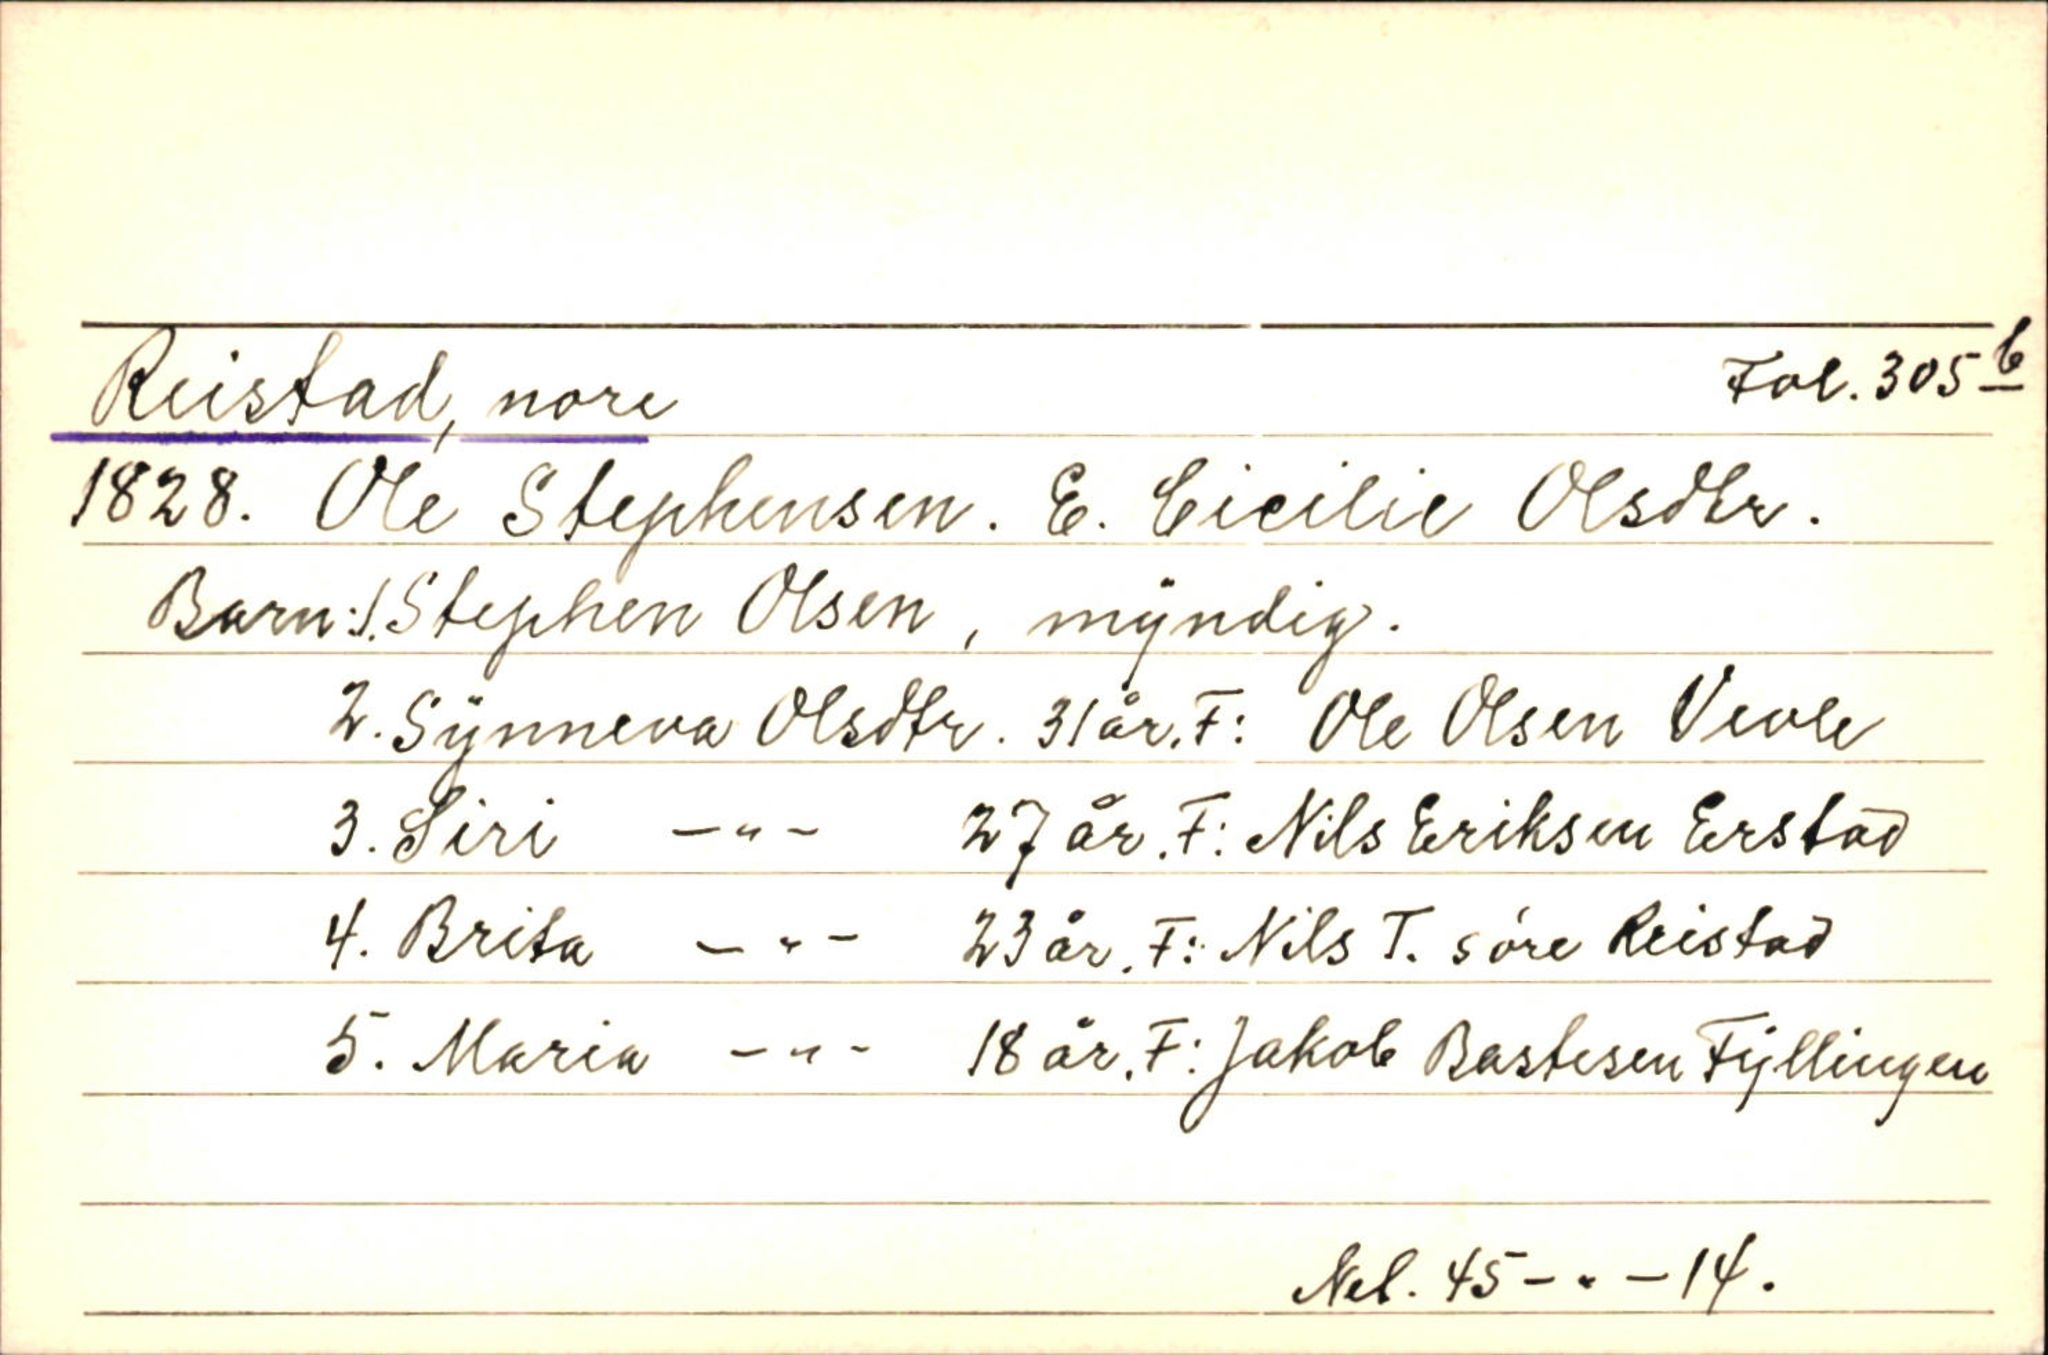 Reistad, nore Fol. 305 b
1828. Ole Stephensen. E. Cicilie Olsdtr.
Barn: 1. Stephen Olsen, mÿndig.
2. Sÿnneva Olsdtr. 31 år. F: Ole Olsen Vevle
3. Siri —"— 27 år. F: Nils Eriksen Erstad
4. Brita —"— 23 år. F: Nils T. søre Reistad
5. Maria —"— 18 år. F: Jakob Bastesen Fÿllingen
Net. 45 —"— 14.